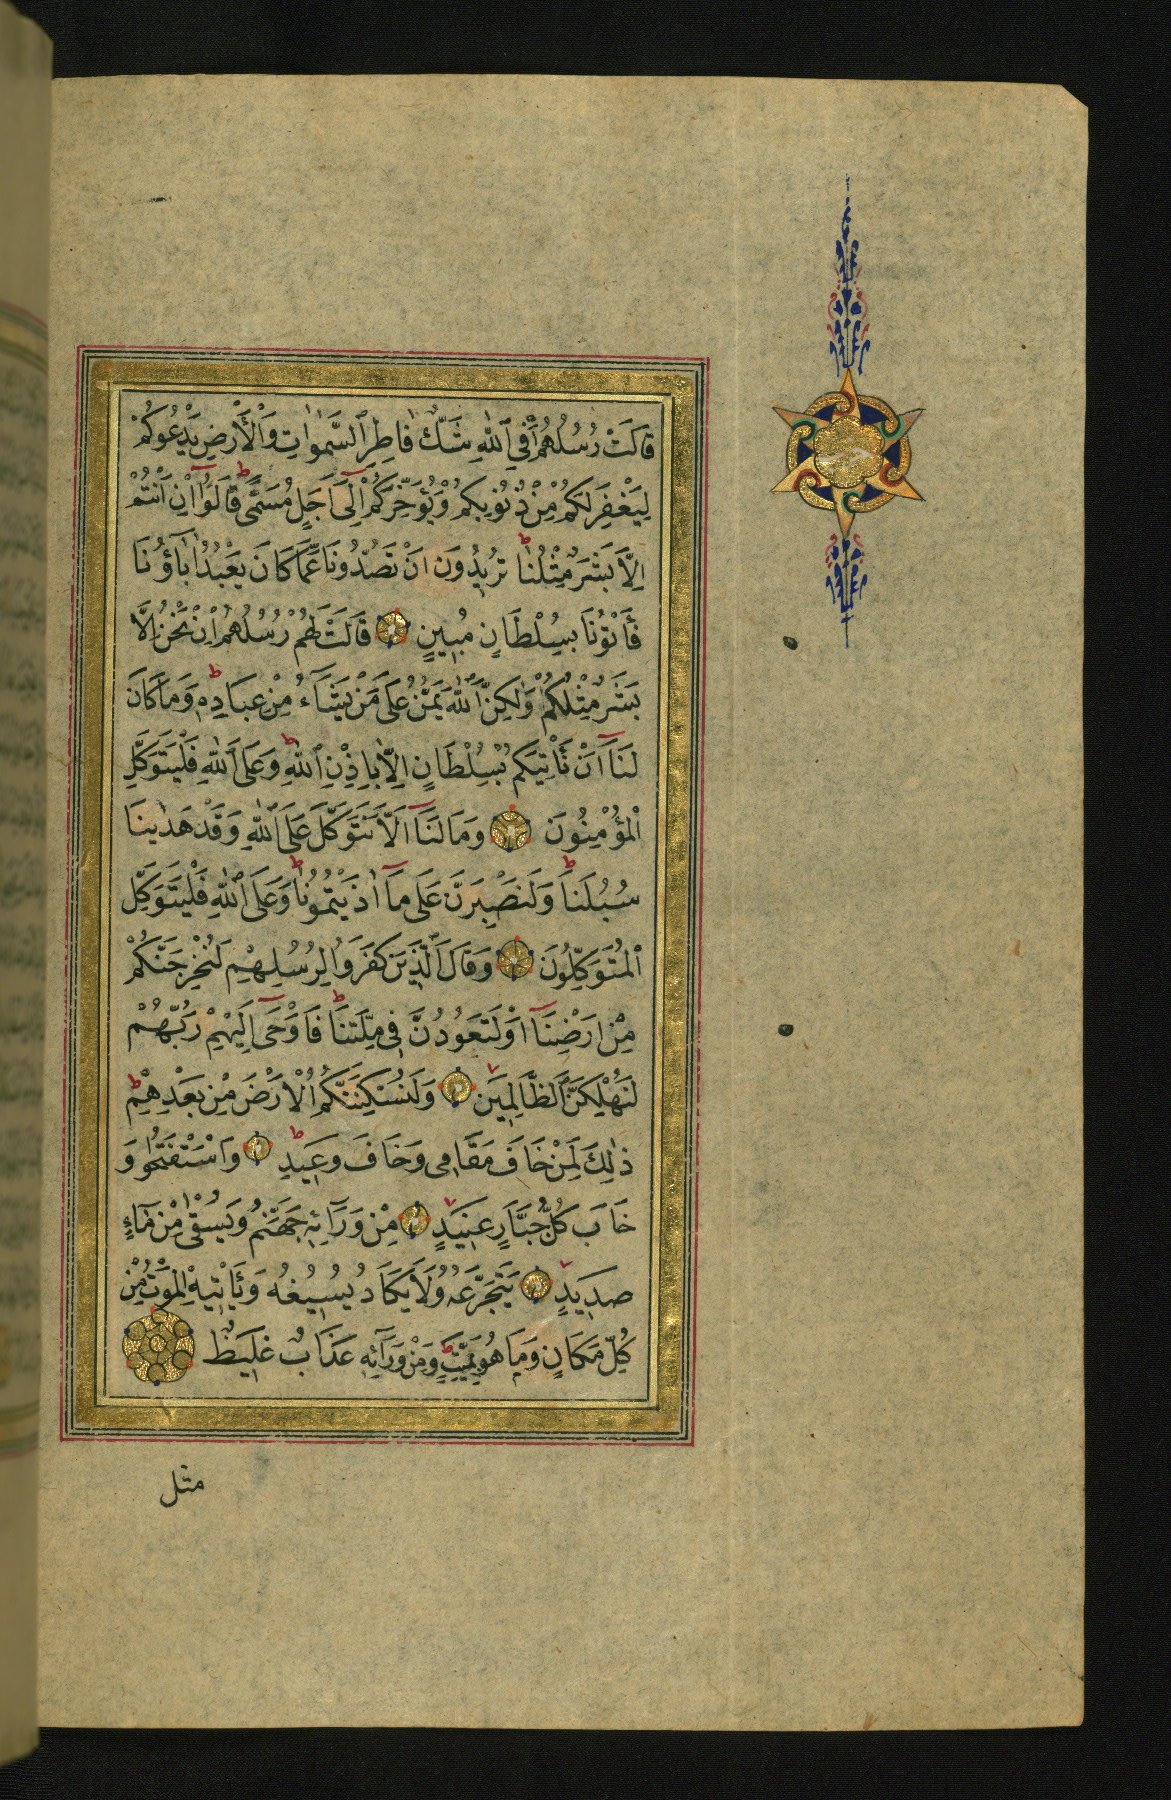 قَالَتْ رُسُلُهُمْ أَفِي ٱللّٰهِ شَكٌّ فَاطِرِ ٱلسَّمٰوَاتِ وَالْأَرْضِ يَدْعُوكُمْ
لِيَغْفِرَ لَكُمْ مِنْ ذُنُوبِكُمْ وَيُؤَخِّرَكُمْ اِلٰٓى اَجَلٍ مُسَمًّىۜ قَالُوٓا اِنْ اَنْتُمْ
اِلَّا بَشَرٌ مِثْلُنَاۜ تُرِيدُونَ اَنْ تَصُدُّونَا عَمَّا كَانَ يَعْبُدُ اٰبَاؤُنَا
فَأْتُونَا بِسُلْطَانٍ مُبِينٍ قَالَتْ لَهُمْ رُسُلُهُمْ اِنْ نَحْنُ اِلَّا
بَشَرٌ مِثْلُكُمْ وَلٰكِنَّ ٱللّٰهَ يَمُنُّ عَلَى مَنْ يَشَاءُ مِنْ عِبَادِهِۜ وَمَا كَانَ
لَنَآ اَنْ نَأْتِيَكُمْ بِسُلْطَانٍ اِلَّا بِاِذْنِ ٱللّٰهِۜ وَعَلَى ٱللّٰهِ فَلْيَتَوَكَّلِ
ٱلْمُؤْمِنُونَ وَمَا لَنَآ اَلَّا نَتَوَكَّلَ عَلَى ٱللّٰهِ وَقَدْ هَدٰينَا
سُبُلَنَاۜ وَلَنَصْبِرَنَّ عَلَى مَآ اٰذَيْتُمُونَاۜ وَعَلَى ٱللّٰهِ فَلْيَتَوَكَّلِ
ٱلْمُتَوَكِّلُونَ وَقَالَ ٱلَّذِينَ كَفَرُوا لِرُسُلِهِمْ لَنُخْرِجَنَّكُمْ
مِنْ اَرْضِنَآ اَوْ لَتَعُودُنَّ فِي مِلَّتِنَاۜ فَاَوْحٰٓى اِلَيْهِمْ رَبُّهُمْ
لَنُهْلِكَنَّ ٱلظَّالِمِينَ وَلَنُسْكِنَنَّكُمُ ٱلْاَرْضَ مِنْ بَعْدِهِمْۜ
ذٰلِكَ لِمَنْ خَافَ مَقَامِي وَخَافَ وَعِيدِ وَاسْتَفْتَحُوا وَ
خَابَ كُلُّ جَبَّارٍ عَنِيدٍ مِنْ وَرَآئِهِ جَهَنَّمُ وَيُسْقٰى مِنْ مَاءٍ
صَدِيدٍ يَتَجَرَّعُهُ وَلَا يَكَادُ يُسِيغُهُ وَيَأْتِيهِ الْمَوْتُ مِنْ
كُلِّ مَكَانٍ وَمَا هُوَ بِمَيِّتٍۜ وَمِنْ وَرَآئِهِ عَذَابٌ غَلِيظٌ
مثل